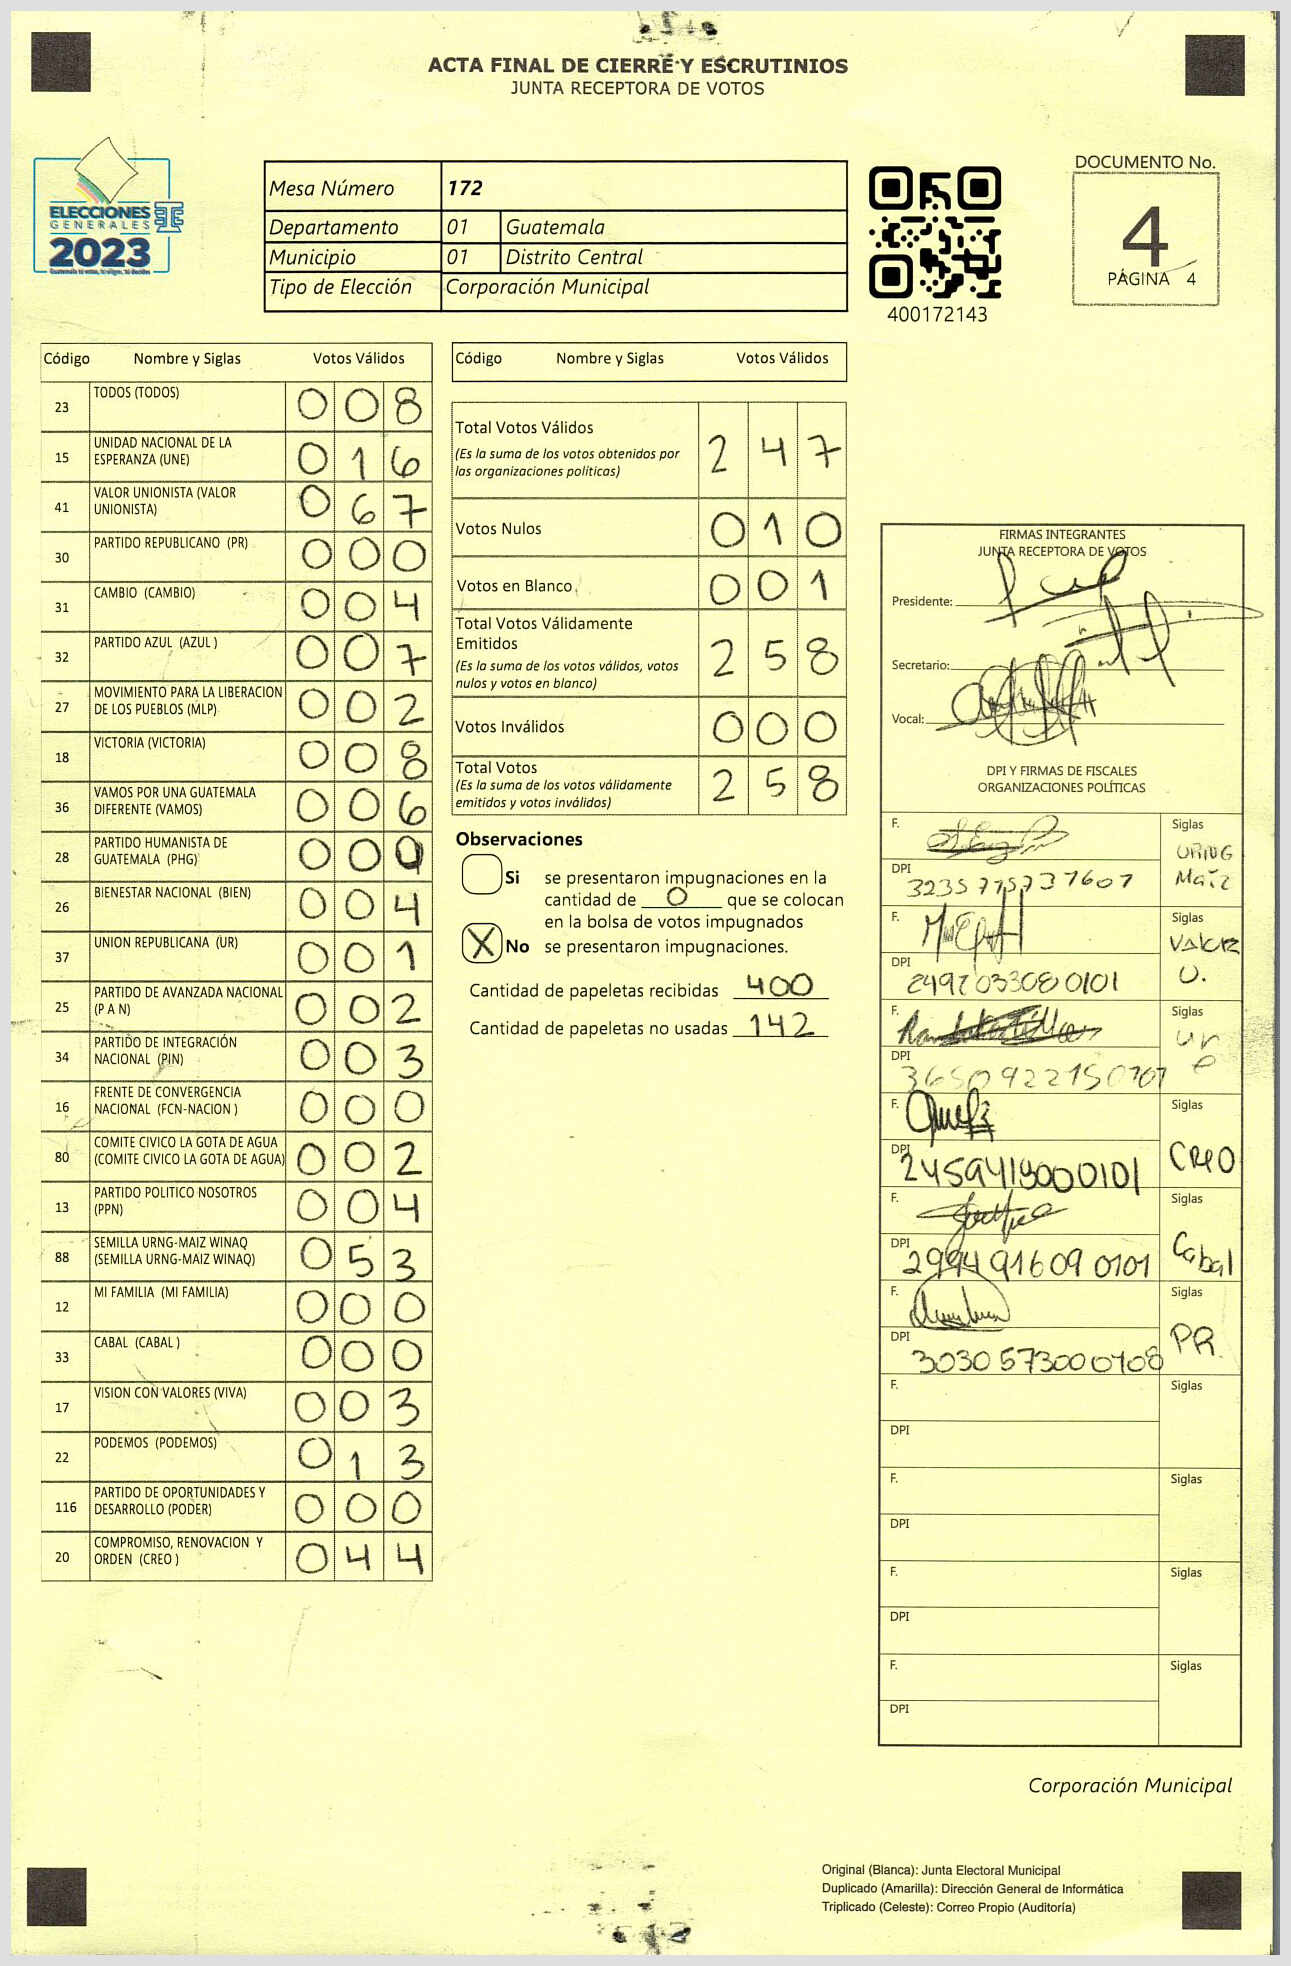 ACTA FINAL DE CIERRE Y ESCRUTINIOS
JUNTA RECEPTORA DE VOTOS
ELECCIONES
GENERALES
2023
Mesa Número 172
Departamento 01 Guatemala
Municipio 01 Distrito Central
Tipo de Elección Corporación Municipal
400172143
DOCUMENTO No.
4
PÁGINA 4
Código Nombre y Siglas Votos Válidos
23 TODOS (TODOS) 0 0 8
15 UNIDAD NACIONAL DE LA
ESPERANZA (UNE) 0 1 6
41 VALOR UNIONISTA (VALOR
UNIONISTA) 0 6 7
30 PARTIDO REPUBLICANO (PR) 0 0 0
31 CAMBIO (CAMBIO) 0 0 4
32 PARTIDO AZUL (AZUL ) 0 0 7
27 MOVIMIENTO PARA LA LIBERACION
DE LOS PUEBLOS (MLP) 0 0 2
18 VICTORIA (VICTORIA) 0 0 8
36 VAMOS POR UNA GUATEMALA
DIFERENTE (VAMOS) 0 0 6
28 PARTIDO HUMANISTA DE
GUATEMALA (PHG) 0 0
26 BIENESTAR NACIONAL (BIEN) 0 0 4
37 UNION REPUBLICANA (UR) 0 0 1
25 PARTIDO DE AVANZADA NACIONAL
(P A N) 0 0 2
34 PARTIDO DE INTEGRACIÓN
NACIONAL (PIN) 0 0 3
16 FRENTE DE CONVERGENCIA
NACIONAL (FCN-NACION ) 0 0 0
80 COMITE CIVICO LA GOTA DE AGUA
(COMITE CIVICO LA GOTA DE AGUA) 0 0 2
13 PARTIDO POLITICO NOSOTROS
(PPN) 0 0 4
88 SEMILLA URNG-MAIZ WINAQ
(SEMILLA URNG-MAIZ WINAQ) 0 5 3
12 MI FAMILIA (MI FAMILIA) 0 0 0
33 CABAL (CABAL ) 0 0 0
17 VISION CON VALORES (VIVA) 0 0 3
22 PODEMOS (PODEMOS) 0 1 3
116 PARTIDO DE OPORTUNIDADES Y
DESARROLLO (PODER) 0 0 0
20 COMPROMISO, RENOVACION Y
ORDEN (CREO ) 0 4 4
Código Nombre y Siglas Votos Válidos
Total Votos Válidos 2 4 7
(Es la suma de los votos obtenidos por
las organizaciones políticas)
Votos Nulos 0 1 0
Votos en Blanco 0 0 1
Total Votos Válidamente
Emitidos 2 5 8
(Es la suma de los votos válidos, votos
nulos y votos en blanco)
Votos Inválidos 0 0 0
Total Votos 2 5 8
(Es la suma de los votos válidamente
emitidos y votos inválidos)
Observaciones
Si se presentaron impugnaciones en la
cantidad de 0 que se colocan
en la bolsa de votos impugnados
X No se presentaron impugnaciones.
Cantidad de papeletas recibidas 400
Cantidad de papeletas no usadas 142
FIRMAS INTEGRANTES
JUNTA RECEPTORA DE VOTOS
Presidente:
Secretario:
Vocal:
DPI Y FIRMAS DE FISCALES
ORGANIZACIONES POLÍTICAS
F. Siglas
URNG
Maíz
DPI
F. Siglas
Valor
U.
DPI
F. Siglas
une
DPI
F. Siglas
CREO
DPI
F. Siglas
Cabal
DPI 2994916090101
F. Siglas
PR.
DPI
F. Siglas
DPI
F. Siglas
DPI
F. Siglas
DPI
F. Siglas
DPI
Corporación Municipal
Original (Blanca): Junta Electoral Municipal
Duplicado (Amarilla): Dirección General de Informática
Triplicado (Celeste): Correo Propio (Auditoría)